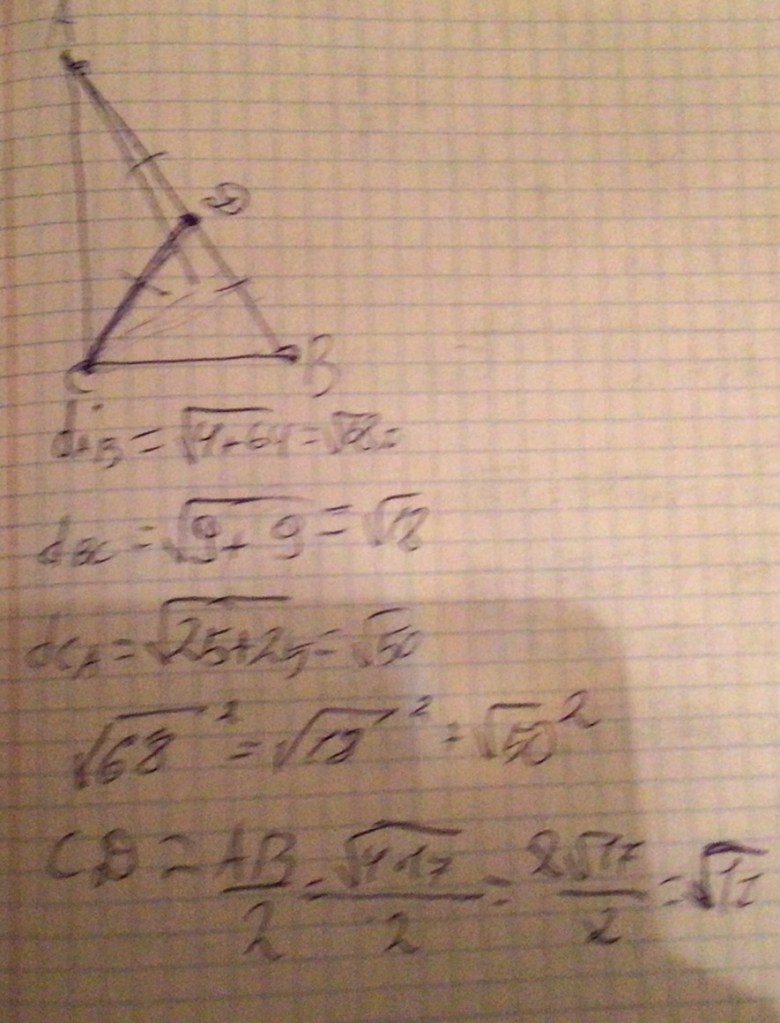 A
D
C B
d_AB = √4+64 = √68 =
d_BC = √9+9 = √18
d_CA = √25+25 = √50
√68² = √18² + √50²
CD = AB/2 = √4·17/2 = 2√17/2 = √17